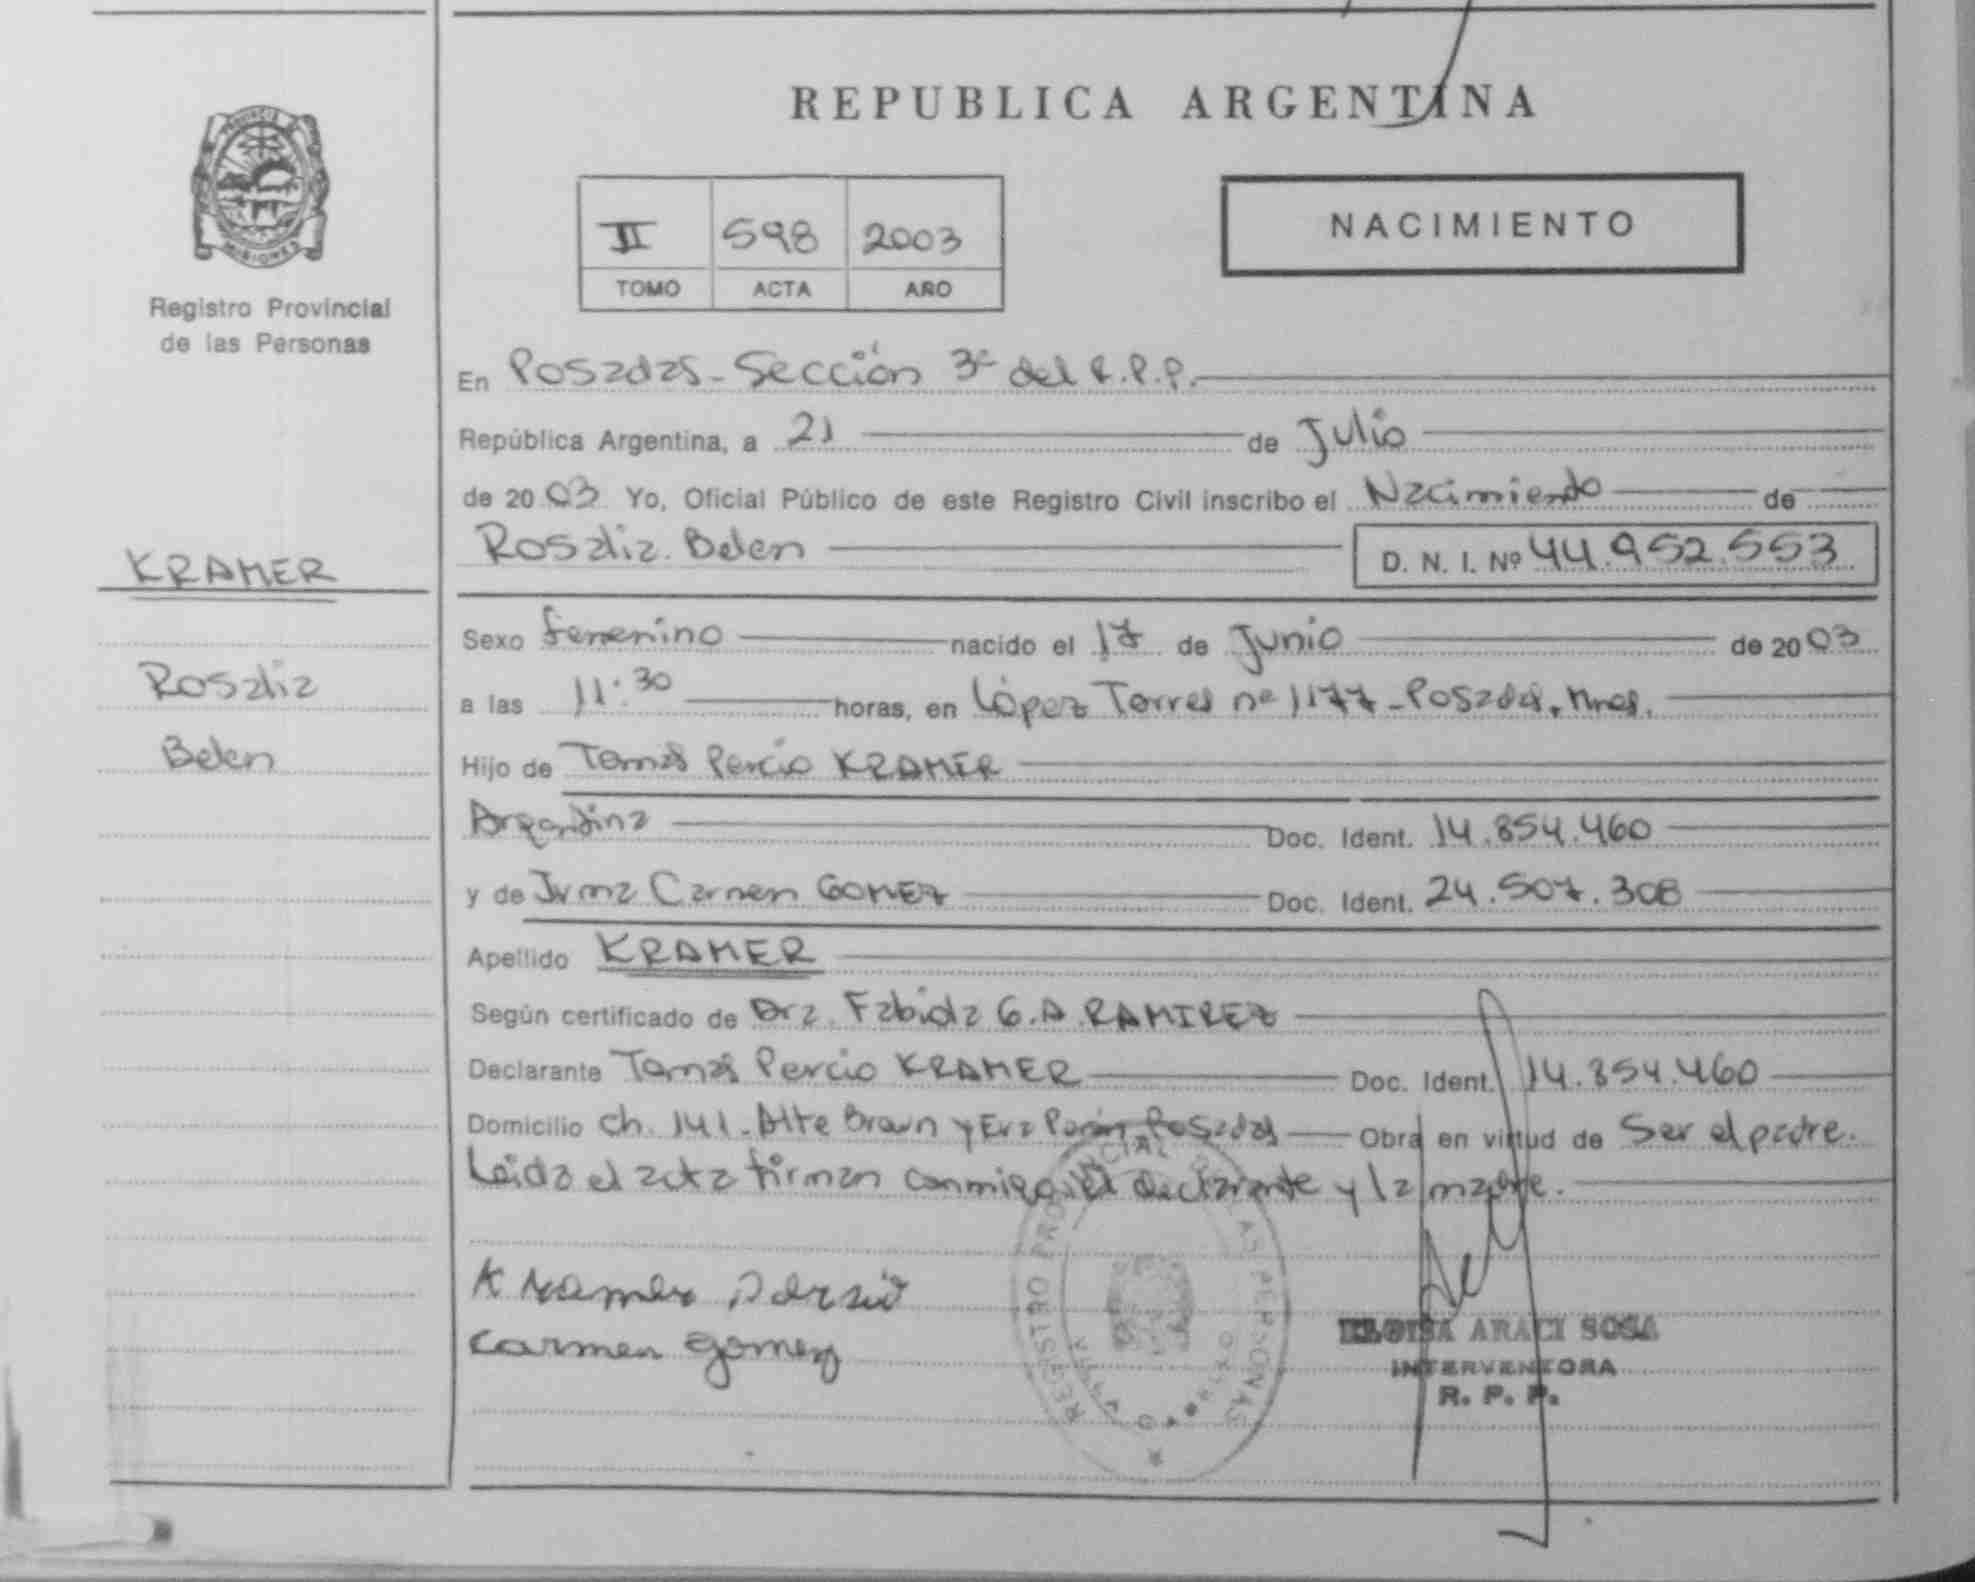 REPUBLICA ARGENTINA
PROVINCIA DE
MISIONES
Registro Provincial
de las Personas
II 598 2003
TOMO ACTA AÑO
NACIMIENTO
En Posadas - Sección 3ª del R.P.P.
República Argentina, a 21 de Julio
de 2003 Yo, Oficial Público de este Registro Civil inscribo el Nacimiento de
Rosalia Belen D. N. I. Nº 44.952.553
KRAMER
Rosalia
Belen
Sexo femenino nacido el 17 de Junio de 2003
a las 11:30 horas, en López Torres nº 1177 - Posadas, Mnes.
Hijo de Tomás Percio KRAMER
Argentina Doc. Ident. 14.854.460
y de Irma Carmen GOMEZ Doc. Ident. 24.507.308
Apellido KRAMER
Según certificado de Dra. Fabiola G.A. RAMIREZ
Declarante Tomás Percio KRAMER Doc. Ident. 14.854.460
Domicilio Ch. 141 - Alte Brown y Eva Perón Posadas Obra en virtud de Ser el padre.
Leida el acta firman conmigo, el declarante y la madre.
Kramer Persio
Carmen gomez
REGISTRO PROVINCIAL DE LAS PERSONAS
ELOISA ARACI SOSA
INTERVENTORA
R. P. P.